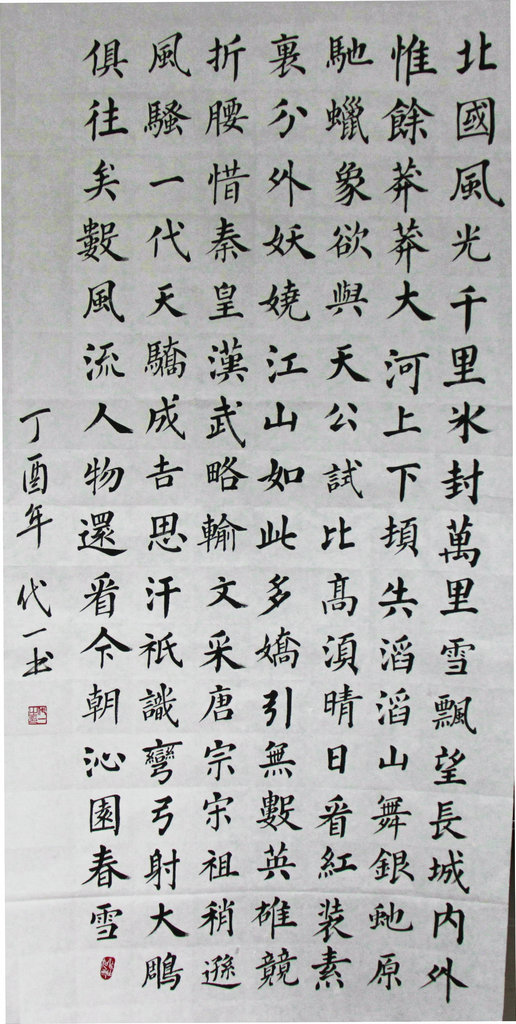 北國風光千里氷封萬里雪飄望長城内外
惟餘莽莽大河上下頓失滔滔山舞銀虵原
馳蠟象欲與天公試比髙須晴日看紅装素
裏分外妖嬈江山如此多嬌引無數英雄競
折腰惜秦皇漢武略輸文采唐宗宋祖稍遜
風騷一代天驕成吉思汗祇識彎弓射大鵰
俱往矣數風流人物還看今朝沁園春雪
丁酉年 代一书